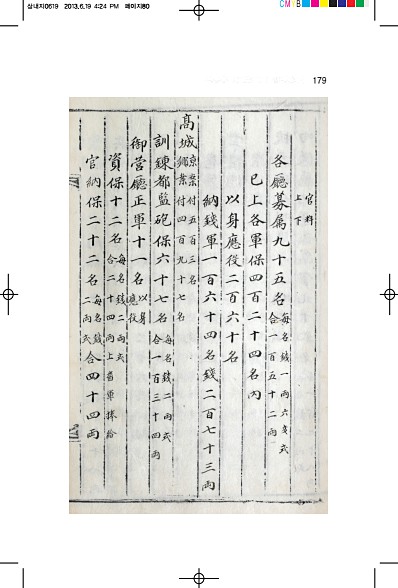 삼내지0619 2013.6.19 4:24 PM 페이지80
CMYB
179
官料
上下
各廳募屬九十五名 每名錢一兩六戔式 合一百五十二兩
已上各軍保四百二十四名內
以身應役二百六十名
納錢軍一百六十四名錢二百七十三兩
高城 京案付五百三名 鄕案付四百九十七名
訓鍊都監砲保六十七名 每名錢二兩式 合一百三十四兩
御營廳正軍十一名 以身應役
資保十二名 每名錢二兩式 合二十四兩上番軍捧給
官納保二十二名 每名錢二兩式 合四十四兩